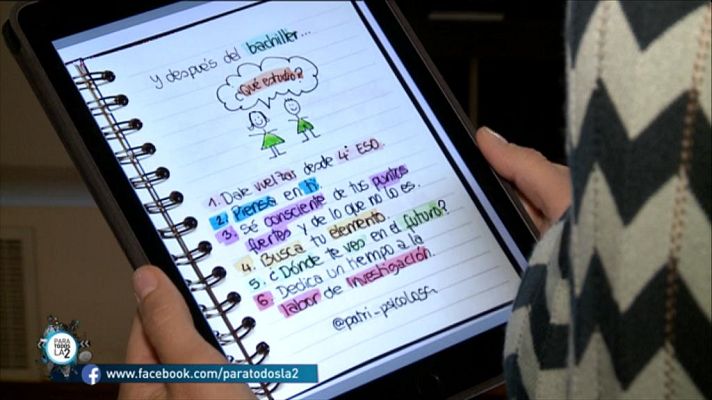 y después del bachiller...
¿Qué estudio?
1. Date vueltas desde 4º ESO.
2. Piensa en ti.
3. Sé consciente de tus puntos
fuertes y de lo que no lo es.
4. Busca tu elemento.
5. ¿Dónde te ves en el futuro?
6. Dedica un tiempo a la
labor de investigación.
@patri_psicologa
PARA
TODOS
LA2
www.facebook.com/paratodosla2